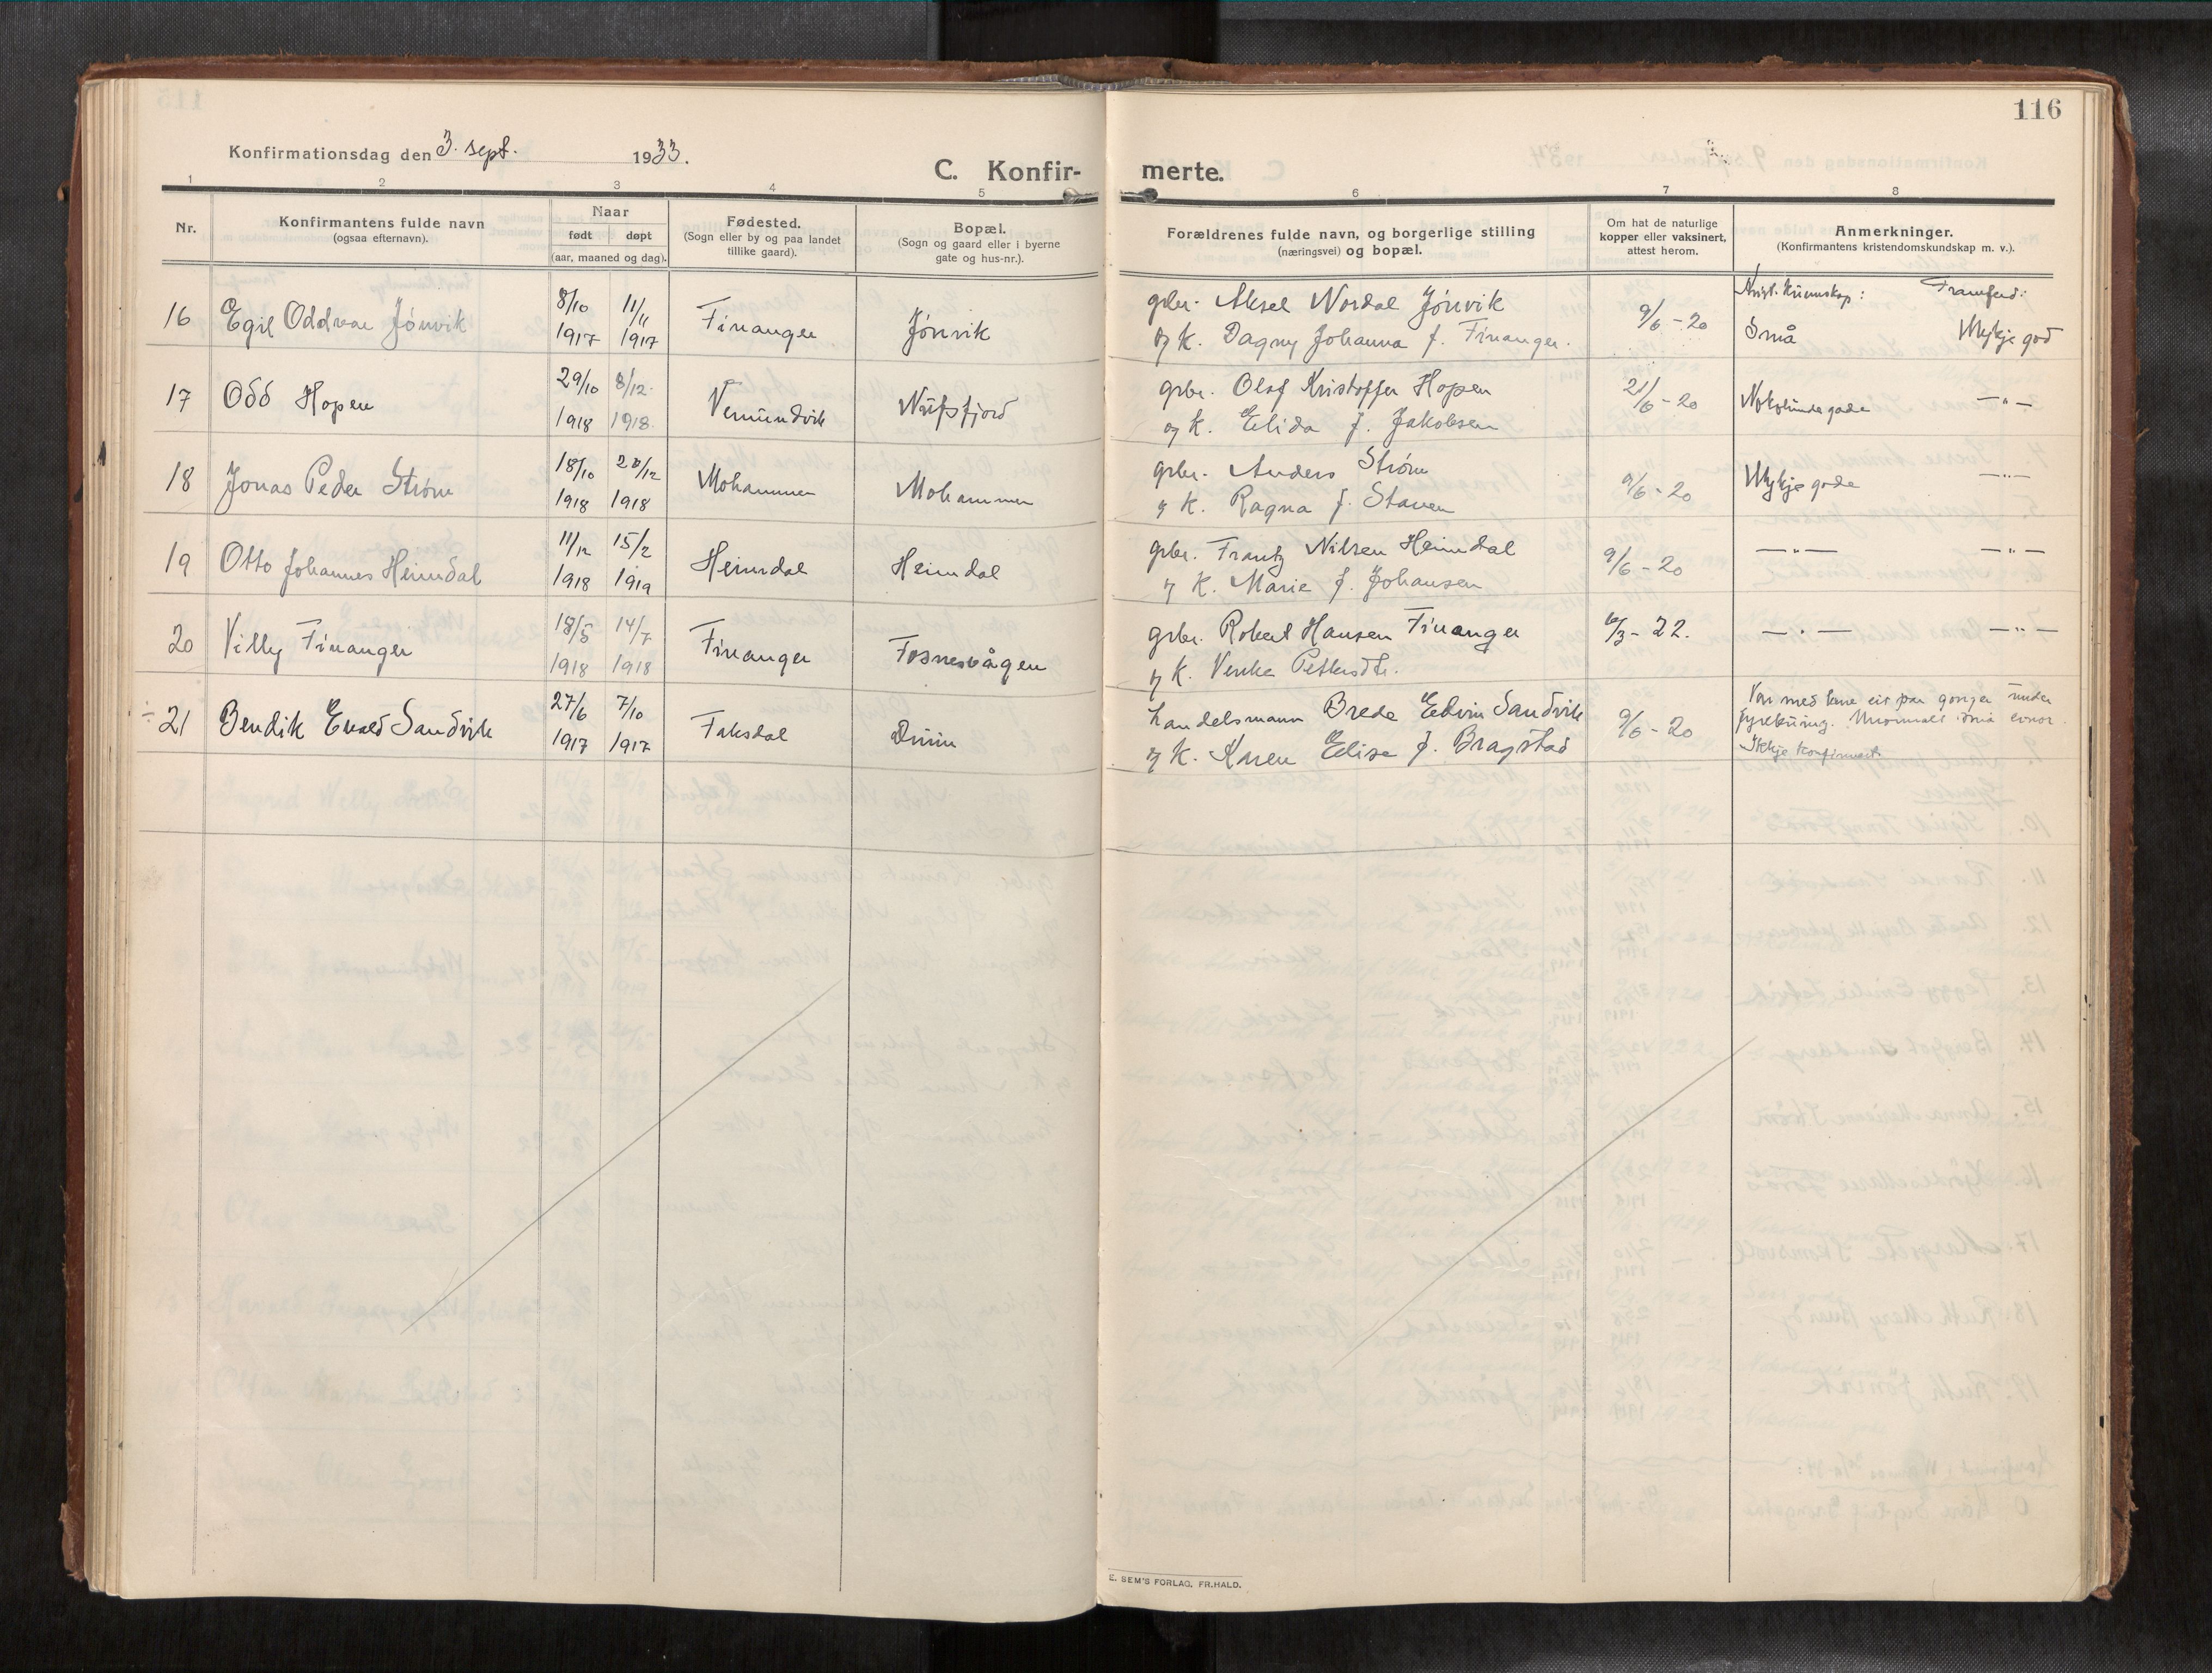 116
Konfirmationsdag den 3. sept. 1933.
C. Konfir-
merte.
1 2 3 4 5 6 7 8
Nr.
Konfirmantens fulde navn
(ogsaa efternavn).
Naar
født døpt
(aar, maaned og dag).
Fødested.
(Sogn eller by og paa landet
tillike gaard).
Bopæl.
(Sogn og gaard eller i byerne
gate og hus-nr.).
Forældrenes fulde navn, og borgerlige stilling
(næringsvei) og bopæl.
Om hat de naturlige
kopper eller vaksinert,
attest herom.
Anmerkninger.
(Konfirmantens kristendomskundskap m. v.).
Krist. kunnskap: Framferd:
16 Egil Oddvar Jønvik 8/10 1917 11/11 1917 Finanger Jønvik
gbr. Aksel Nordal Jønvik
og K. Dagny Johanna f. Finanger.
9/6 - 20 Små Mykje god
17 Odd Hopen 29/10 1918 8/12 1918 Vemundvik Nufsfjord
gbr. Olaf Kristoffer Hopen
og K. Elida f. Jakobsen
21/6 - 20 Nokolunde gode — " —
18 Jonas Peder Strøm 18/10 1918 1918 Mohammer Mohammer
gbr. Anders Strøm
og K. Ragna f. Staven
9/6 - 20 Mykje gode — " —
19 Otto Johannes Heimdal 11/12 1918 15/2 1919 Heimdal Heimdal
gbr. Frantz Nilsen Heimdal
og K. Marie f. Johansen
9/6 - 20 — " — — " —
20 Villy Finanger 18/5 1918 14/7 1918 Finanger Fosnesvågen
gbr. Robert Hansen Finanger
og K. Venka Pettersdtr.
/3 - 22. — " — — " —
÷ 21 Bendik Evald Sandvik 27/6 1917 7/10 1917 Faksdal Duun
handelsmann Brede Edvin Sandvik
og K. Karen Elise f. Bragstad
9/6 - 20
Var med berre eit par gonger under
fyrebuing. Unormalt små evnor.
Ikkje konfirmert.
E. SEM'S FORLAG, FR.HALD.